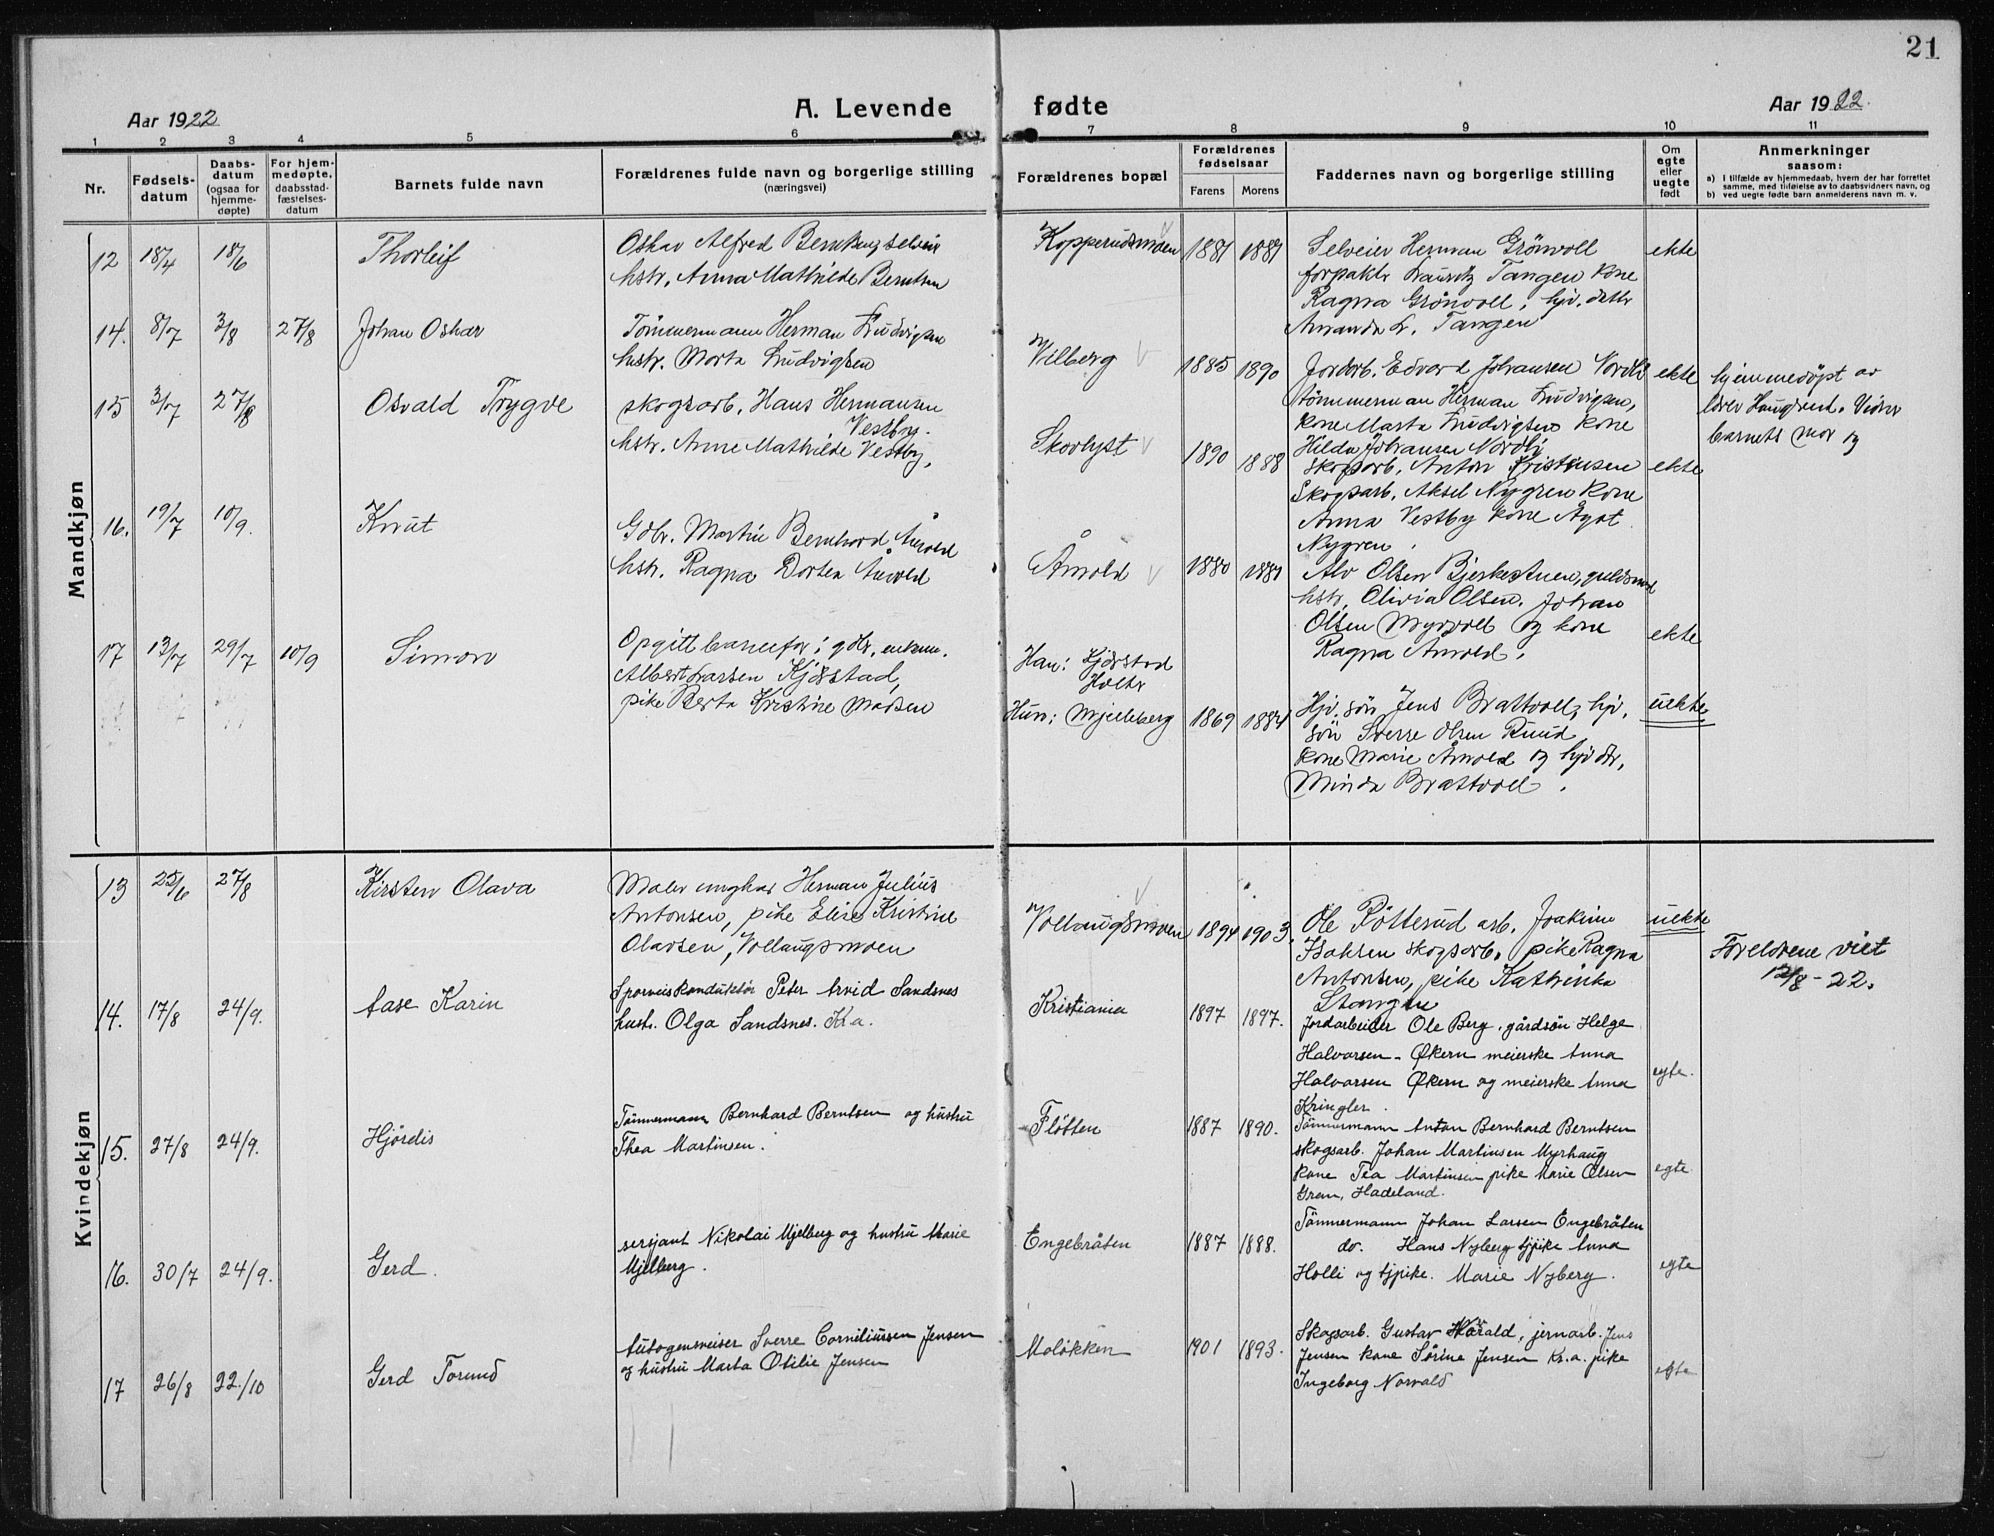 21
Aar 1922
A. Levende fødte
Aar 1922.
1 2 3 4 5 6 7 8 9 10 11
Nr.
Fødsels-
datum
Daabs-
datum
(ogsaa for
hjemme-
døpte)
For hjem-
medøpte,
daabsstad-
fæstelses-
datum
Barnets fulde navn
Forældrenes fulde navn og borgerlige stilling
(næringsvei)
Forældrenes bopæl
Forældrenes
fødselsaar
Farens Morens
Faddernes navn og borgerlige stilling
Om
egte
eller
uegte
født
Anmerkninger
saasom:
a) I tilfælde av hjemmedaab, hvem der har forrettet
samme, med tilføielse av to daabsvidners navn, og
b) ved uegte fødte barn anmelderens navn m. v.
Mandkjøn
12 18/4 18/6
Thorleif
Oskar Alfred
hstr. Anna Mathilde Berntsen
Kopperudsmoen
1881 1881
Selveier Herman Grönvoll
forpakter Lauritz Tangen kone
Ragna Grönvoll, hjv. dattr
Amanda L. Tangen
ekte
14. 8/7 3/8 27/8
Johan Oskar
Tömmermann Herman Ludvigsen
hstr. Marta Ludvigsen
Vilberg
1885 1890
Jordarb. Edvard Johansen Nordli
tömmerman Herman Ludvigsen,
kone Marta Ludvigsen kone
Hilda Johansen Nordli
ekte
hjemmedöpt av
lærer Haugrud. Vidner
barnets mor og
15 3/7 27/8
Osvald Trygve
skogsarb. Hans Hermansen
Vestby.
hstr. Anne Mathilde Vestby,
Skovlyst
1890 1888
Skogsarb. Anton Kristensen
Skogsarb. Aksel Nygren kone
Anna Vestby kone Agot
Nygren.
ekte
16. 19/7 10/9.
Knut
Gdbr. Martin Bernhard Årvold
hstr. Ragna Dorthea Årvold
Årvold
1880 1881
Alv Olsen Bjerkestuen,
hstr. Olivia Olsen. Johan
Olsen Myrvoll og kone
Ragna Årvold.
ekte
17 13/7 29/7 10/9
Simon
Opgitt barnefar: gdbr. enkem.
Albert Larsen Kjörstad,
pike Berta Kristine Madsen
Han: Kjörstad
Holter
Hun: Mjelleberg
1869 1884
Hjv. sön Jens Brattvoll, hjv.
sön Sverre Olsen Ruud
kone Marie Årvold og hjv dtr,
Minda Brattvoll.
uekte
Kvindekjøn
13 25/6 27/8
Kirsten Olava
Maler ungkar Herman Julius
Antonsen, pike Elise Kristine
Olavsen, Vollaugsmoen
Vollaugsmoen
1894 1903
Ole Rötterud arb. Joakim
Isaksen skogsarb. pike Ragna
Antonsen, pike Kathinka
Stangen
uekte
Foreldrene viet
12/8 - 22.
14. 17/8 24/9.
Aase Karin
Sporveiskonduktör Peter Arvid Sandsnes
hust. Olga Sandsnes. Kr.a.
Kristiania
1897 1897.
Jordarbeider Ole Berg, gårdsön Helge
Halvorsen - Økern meierske Anna
Halvorsen Økern og meierske Anna
Kringler.
egte.
15. 27/8 24/9.
Hjördis
Tömmermann Bernhard Berntsen og hustru
Thea Martinsen.
Flötten
1887 1890.
Tömmermann Anton Bernhard Berntsen
skogsarb. Johan Martinsen Myrhaug
kone Tea Martinsen pike Marie Olsen
Gran, Hadeland.
egte
16. 30/7 24/9.
Gerd.
serjant Nikolai Mjelberg og hustru Marie
Mjelberg.
Engebråten
1887 1888.
Tömmermann Johan Larsen Engebråten
do. Hans Nyberg tjpike Anna
Holli og tjpike. Marie Nyberg.
egte
17 26/8 22./10
Gerd Torund
Autogensveiser Sverre Corneliussen Jensen
og hustru Marta Otilie Jensen
Moløkken
1901 1893.
Skogsarb. Gustav Harald, jernarb. Jens
Jensen kone Sörine Jensen Kr.a. pike
Ingeborg Norvald
egte